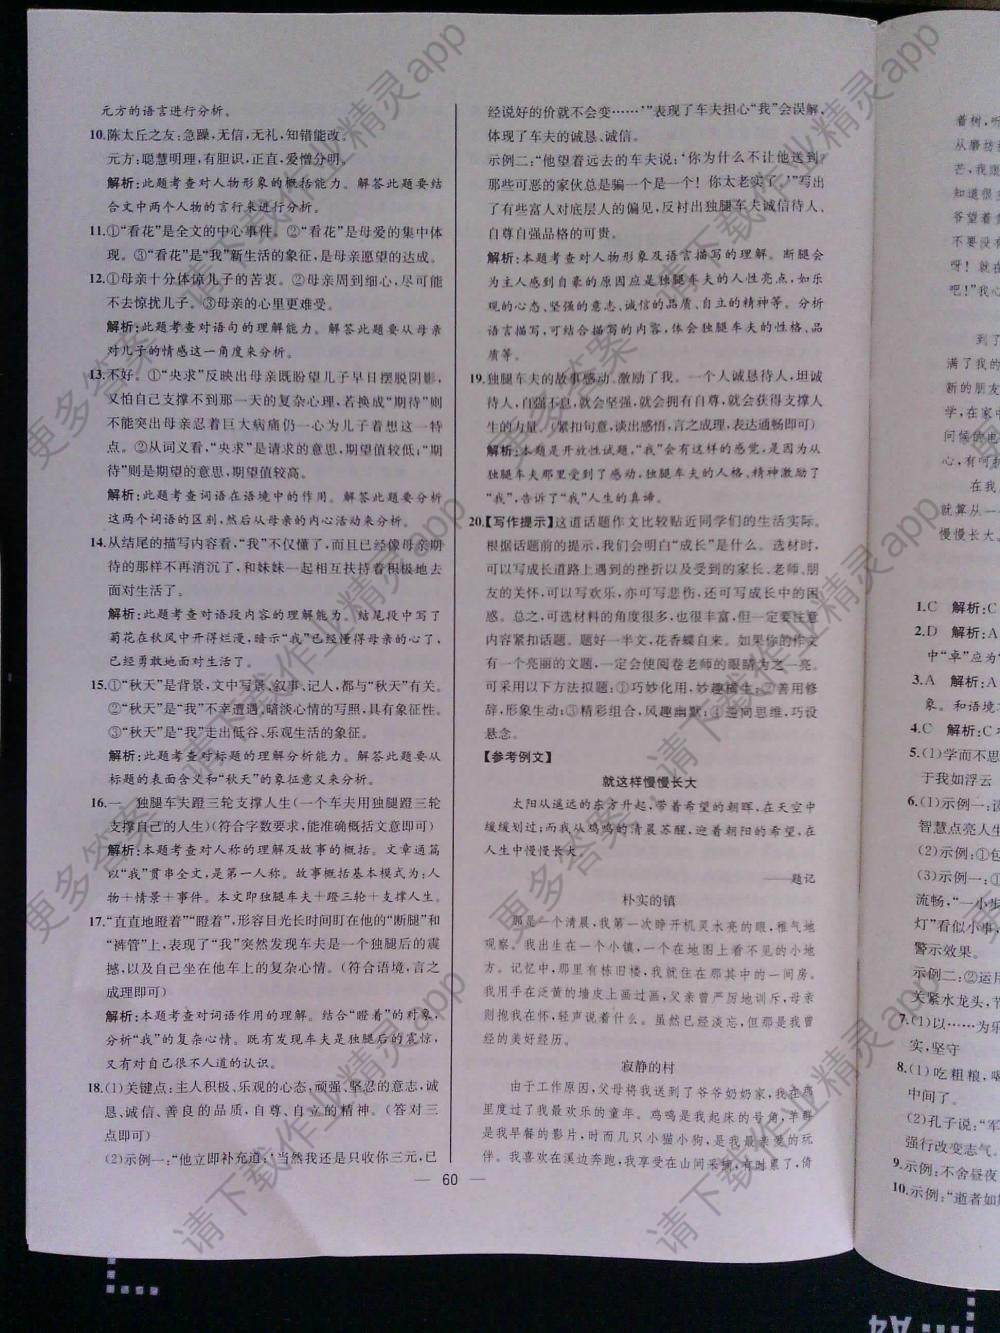 元方的语言进行分析。
10.陈太丘之友:急躁,无信,无礼,知错能改。
元方:聪慧明理,有胆识,正直,爱憎分明。
解析:此题考查对人物形象的概括能力。解答此题要结
合文中两个人物的言行来进行分析。
11.①“看花”是全文的中心事件。②“看花”是母爱的集中体
现。③“看花”是“我”新生活的象征,是母亲愿望的达成。
12.①母亲十分体谅儿子的苦衷。②母亲周到细心,尽可能
不去惊扰儿子。③母亲的心里更难受。
解析:此题考查对语句的理解能力。解答此题要从母亲
对儿子的情感这一角度来分析。
13.不好。①“央求”反映出母亲既盼望儿子早日摆脱阴影,
又怕自己支撑不到那一天的复杂心理,若换成“期待”则
不能突出母亲忍着巨大病痛仍一心为儿子着想这一特
点。②从词义看,“央求”是请求的意思,期望值较低;“期
待”则是期望的意思,期望值较高。
解析:此题考查词语在语境中的作用。解答此题要分析
这两个词语的区别,然后从母亲的内心活动来分析。
14.从结尾的描写内容看,“我”不仅懂了,而且已经像母亲期
待的那样不再消沉了,和妹妹一起相互扶持着积极地去
面对生活了。
解析:此题考查对语段内容的理解能力。结尾段中写了
菊花在秋风中开得烂漫,暗示“我”已经懂得母亲的心了,
已经勇敢地面对生活了。
15.①“秋天”是背景,文中写景、叙事、记人,都与“秋天”有关。
②“秋天”是“我”不幸遭遇,暗淡心情的写照,具有象征性。
③“秋天”是“我”走出低谷、乐观生活的象征。
解析:此题考查对标题的理解分析能力。解答此题要从
标题的表面含义和“秋天”的象征意义来分析。
16.一 独腿车夫蹬三轮支撑人生(一个车夫用独腿蹬三轮
支撑自己的人生)(符合字数要求,能准确概括文意即可)
解析:本题考查对人称的理解及故事的概括。文章通篇
以“我”贯串全文,是第一人称。故事概括基本模式为:人
物+情景+事件。本文即独腿车夫+蹬三轮+支撑人生。
17.“直直地瞪着”“瞪着”,形容目光长时间盯在他的“断腿”和
“裤管”上,表现了“我”突然发现车夫是一个独腿后的震
撼,以及自己坐在他车上的复杂心情。(符合语境,言之
成理即可)
解析:本题考查对词语作用的理解。结合“瞪着”的对象,
分析“我”的复杂心情。既有发现车夫是独腿后的震惊,
又有对自己很不人道的认识。
18.(1)关键点:主人积极、乐观的心态,顽强、坚忍的意志,诚
恳、诚信、善良的品质,自尊、自立的精神。(答对三
点即可)
(2)示例一:“他立即补充道:‘当然我还是只收你三元,已
经说好的价就不会变……’”表现了车夫担心“我”会误解,
体现了车夫的诚恳、诚信。
示例二:“他望着远去的车夫说:‘你为什么不让他送到
那些可恶的家伙总是骗一个是一个!你太老实了!’”写出
了有些富人对底层人的偏见,反衬出独腿车夫诚信待人、
自尊自强品格的可贵。
解析:本题考查对人物形象及语言描写的理解。断腿会
为主人感到自豪的原因应是独腿车夫的人性亮点,如乐
观的心态、坚强的意志、诚信的品质、自立的精神等。分析
语言描写,可结合描写的内容,体会独腿车夫的性格、品
质等。
19.独腿车夫的故事感动、激励了我。一个人诚恳待人,坦诚
待人,自强不息,就会坚强,就会拥有自尊,就会获得支撑人
生的力量。(紧扣句意,谈出感悟,言之成理,表达通畅即可)
解析:本题是开放性试题,“我”会有这样的感觉,是因为从
独腿车夫那里受到了感动,独腿车夫的人格、精神激励了
“我”,告诉了“我”人生的真谛。
20.【写作提示】这道话题作文比较贴近同学们的生活实际。
根据话题前的提示,我们会明白“成长”是什么。选材时,
可以写成长道路上遇到的挫折以及受到的家长、老师、朋
友的关怀,可以写欢乐,亦可写悲伤,还可写成长中的困
惑。总之,可选材料的角度很多,也很丰富,但一定要注意
内容紧扣话题。题好一半文,花香蝶自来。如果你的作文
有一个亮丽的文题,一定会使阅卷老师的眼睛为之一亮。
可采用以下方法拟题:①巧妙化用,妙趣横生;②善用修
辞,形象生动;③精彩组合,风趣幽默;④逆向思维,巧设
悬念。
【参考例文】
就这样慢慢长大
太阳从遥远的东方升起,带着希望的朝晖,在天空中
缓缓划过;而我从鸡鸣的清晨苏醒,迎着朝阳的希望,在
人生中慢慢长大。
——题记
朴实的镇
那是一个清晨,我第一次睁开机灵水亮的眼,稚气地
观察。我出生在一个小镇,一个在地图上看不见的小地
方。记忆中,那里有栋旧楼,我就住在那其中的一间房。
我用手在泛黄的墙皮上画过画,父亲曾严厉地训斥,母亲
则抱我在怀,轻声说着什么。虽然已经淡忘,但那是我曾
经的美好经历。
寂静的村
由于工作原因,父母将我送到了爷爷奶奶家,我在那
里度过了我最欢乐的童年。鸡鸣是我起床的号角,羊群
是我早餐的影片,时而几只小猫小狗,是我最亲爱的玩
伴。我喜欢在溪边奔跑,我享受在山间采摘,有时累了,倚
60
着树,听
从磨坊
芒,我
知道很
爷望着
不要没有
呀!就在
吧!”我心
到了
满了我的
新的朋友
学,在家中
问候的电
心,有呵
在我
就算从一
慢慢长大
1.C 解析:C
2.D 解析:A
中“卓”应为“
3.A 解析:A
象。和语境
4.C 解析:C
5.(1)学而不思
于我如浮云
6.(1)示例一:
智慧点亮人生
(2)示例:①包
(3)示例一:①
流畅,“一小步
灯”看似小事,
警示效果。
示例二:②运用
关紧水龙头,节
7.(1)以……为乐
实,坚守
8.(1)吃粗粮,喝
中间了。
(2)孔子说:“军
强行改变志气。
9.示例:不舍昼夜
10.示例:“逝者如
更多答案 请下载作业精灵app
更多答案 请下载作业精灵app
更多答案 请下载作业精灵app
更多答案 请下载作业精灵app
A4